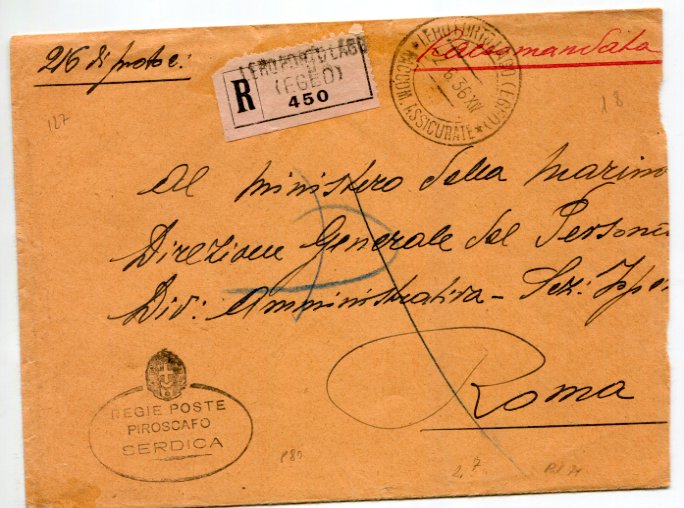 216 di protoc:
LERO PORTO LAGO
(EGEO)
R
450
LERO PORTO LAGO (EGEO)
6.36 XIV
RACCOM. ASSICURATE
Raccomandata
127
18
Al Ministero della Marina
Direzione Generale del Person
Div: Amministrativa - Sez:
Roma
REGIE POSTE
PIROSCAFO
SERDICA